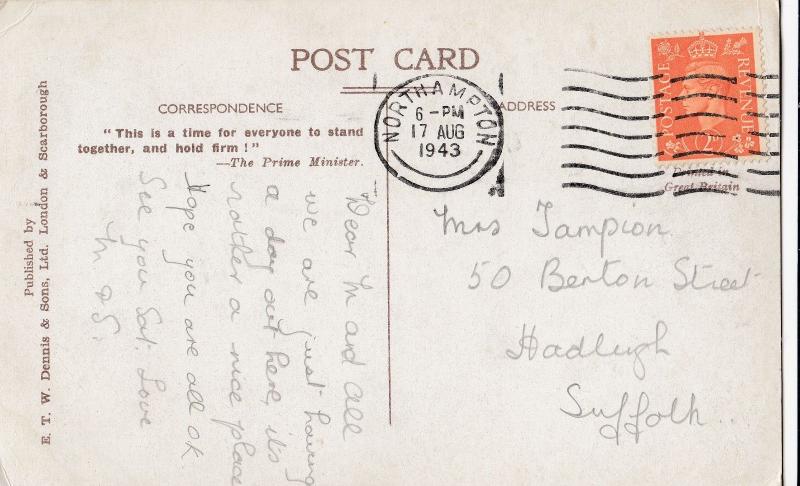 POST CARD
CORRESPONDENCE
ADDRESS
"This is a time for everyone to stand
together, and hold firm!"
—The Prime Minister.
Published by
E. T. W. Dennis & Sons, Ltd. London & Scarborough
NORTHAMPTON
6 -PM
17 AUG
1943
POSTAGE
REVENUE
Printed in
Great Britain
Dear M and all
we are just having
a day out here, its
rather a nice place
Hope you are all ok.
See you Sat. Love
M & S.
Mrs Tampion
50 Benton Street
Hadleigh
Suffolk..